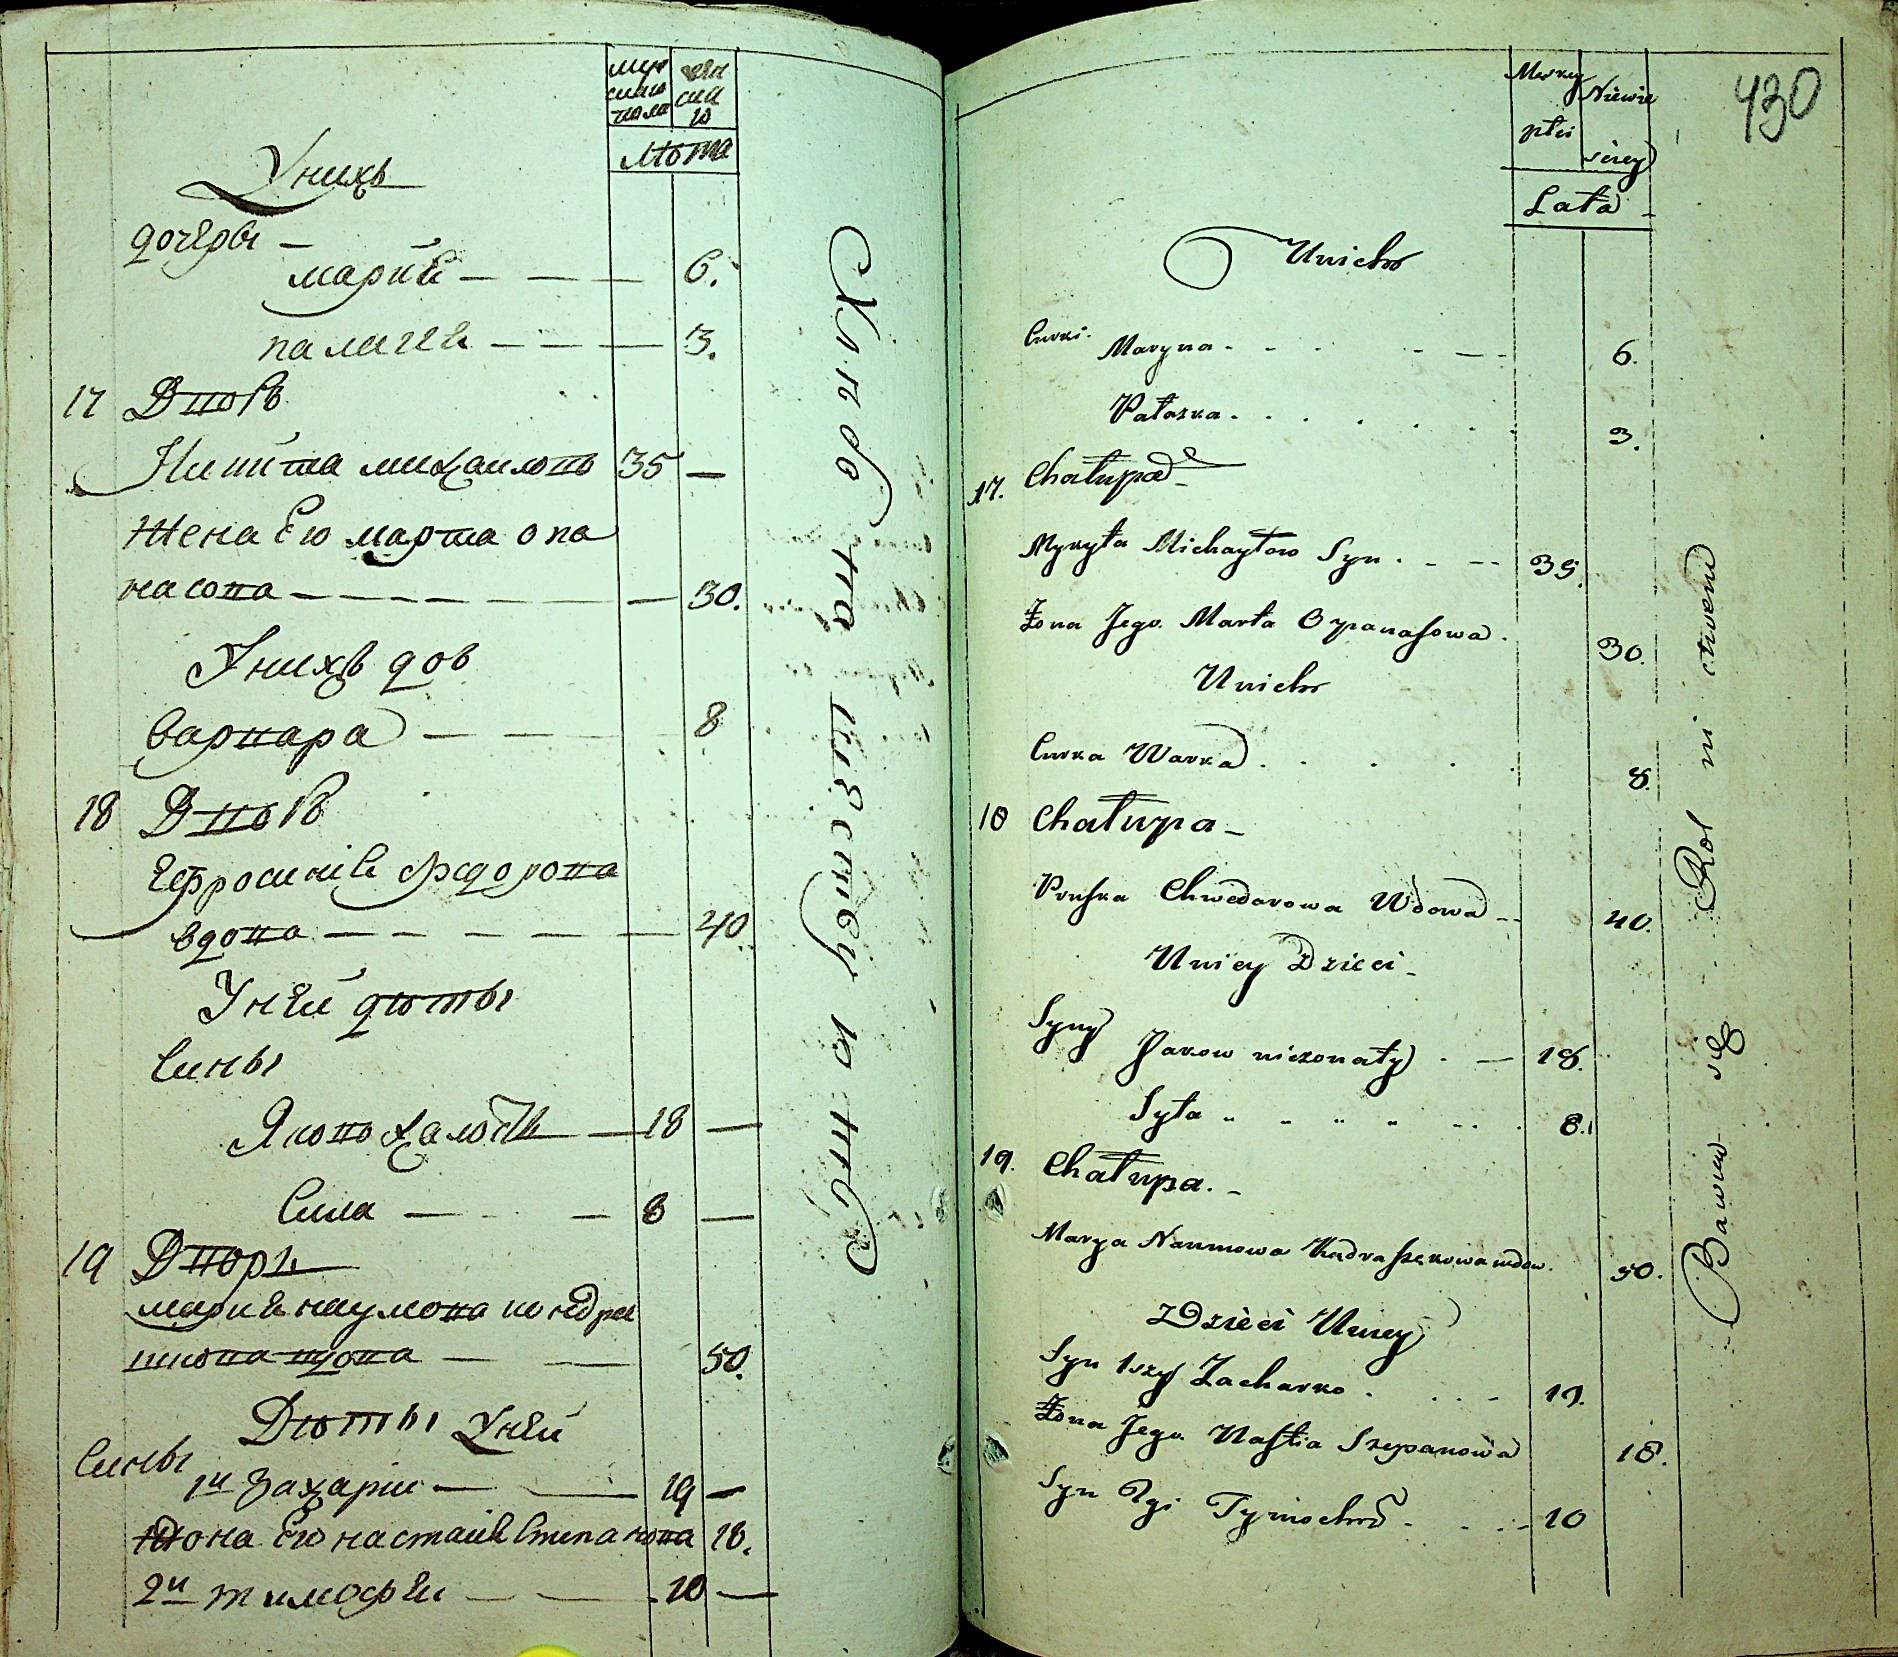 муж
скаго
пола
жен
ска
го
Лѣта
Унихъ
дочери —
мариѣ — — — 6.
палагеѣ — — — 3.
17 Дворъ
Никита михаиловъ 35 —
Жена Его марта опа
насова — — — — — — 30.
Унихъ доч
варвара — — — 8
18 Дворъ
Ефросиниѣ Федорова
вдова — — — — — 40
Уней дѣти
Сини
Яковъ халостъ — 18 —
Сила — — — 8 —
19 Дворъ
мариѣ наумова кондра
шкова вдова — — 50.
Дѣти Уней
Сини
1й Захарий — — 19 —
Жона Его настасиѣ Степанова 18.
2й тимофей — — 10 —
430
Mezkey
płci
Niewie
sciey
Lata
Unich
Curki. Maryna - - - - - 6.
Pałazka. . . . . . 3.
17. Chałupa
Mykyta Michayłow Syn . - -- 35.
Żona Jego. Marta Opanasowa. 30.
Unich
Curka Warka . . . . 8.
18 Chałupa -
Pruska Chwedorowa Wdowa -- 40.
Uniey Dzieci -
Syny
Jakow niezonaty . — 18.
Syła - - - - -- . 8.
19. Chałupa. -
Marya Naumowa Kadraszkowa wdow. 50.
Dzieci Uniey
Syn 1szy Zacharko . . . . - 19.
Żona Jego Nastia Szepanowa 18.
Syn 2gi Tymochw . . . . - 10
Bawiew się Rol ni ctwem